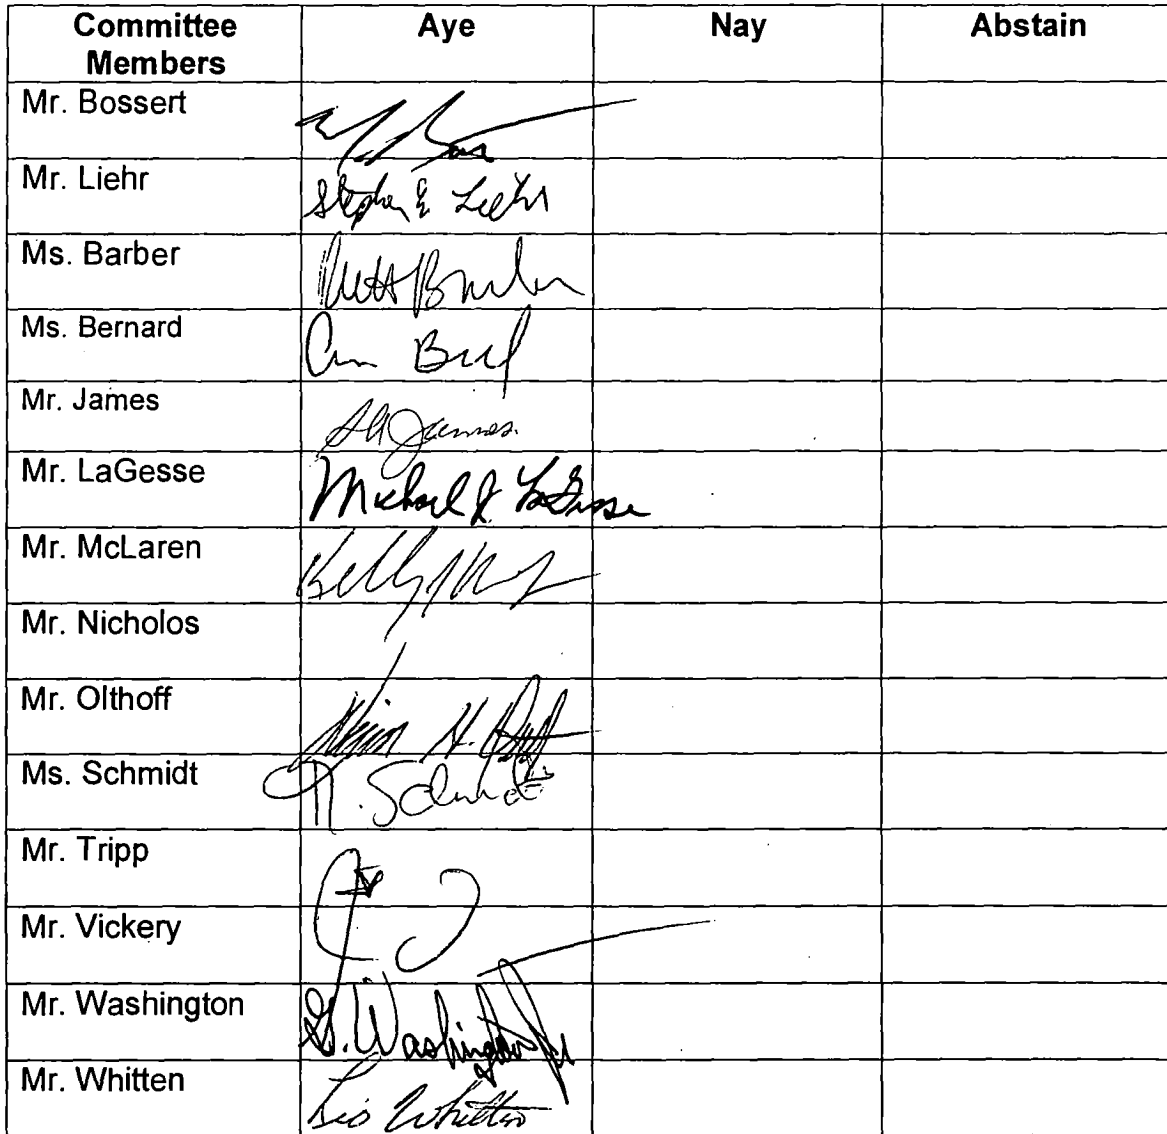 Committee Members Aye Nay Abstain
Mr. Bossert
Mr. Liehr Stephen E Liehr
Ms. Barber
Ms. Bernard
Mr. James James
Mr. LaGesse Michael J. LaGesse
Mr. McLaren Kelly
Mr. Nicholos
Mr. Olthoff H.
Ms. Schmidt N. Schmidt
Mr. Tripp
Mr. Vickery
Mr. Washington G. Washington Jr
Mr. Whitten Whitten